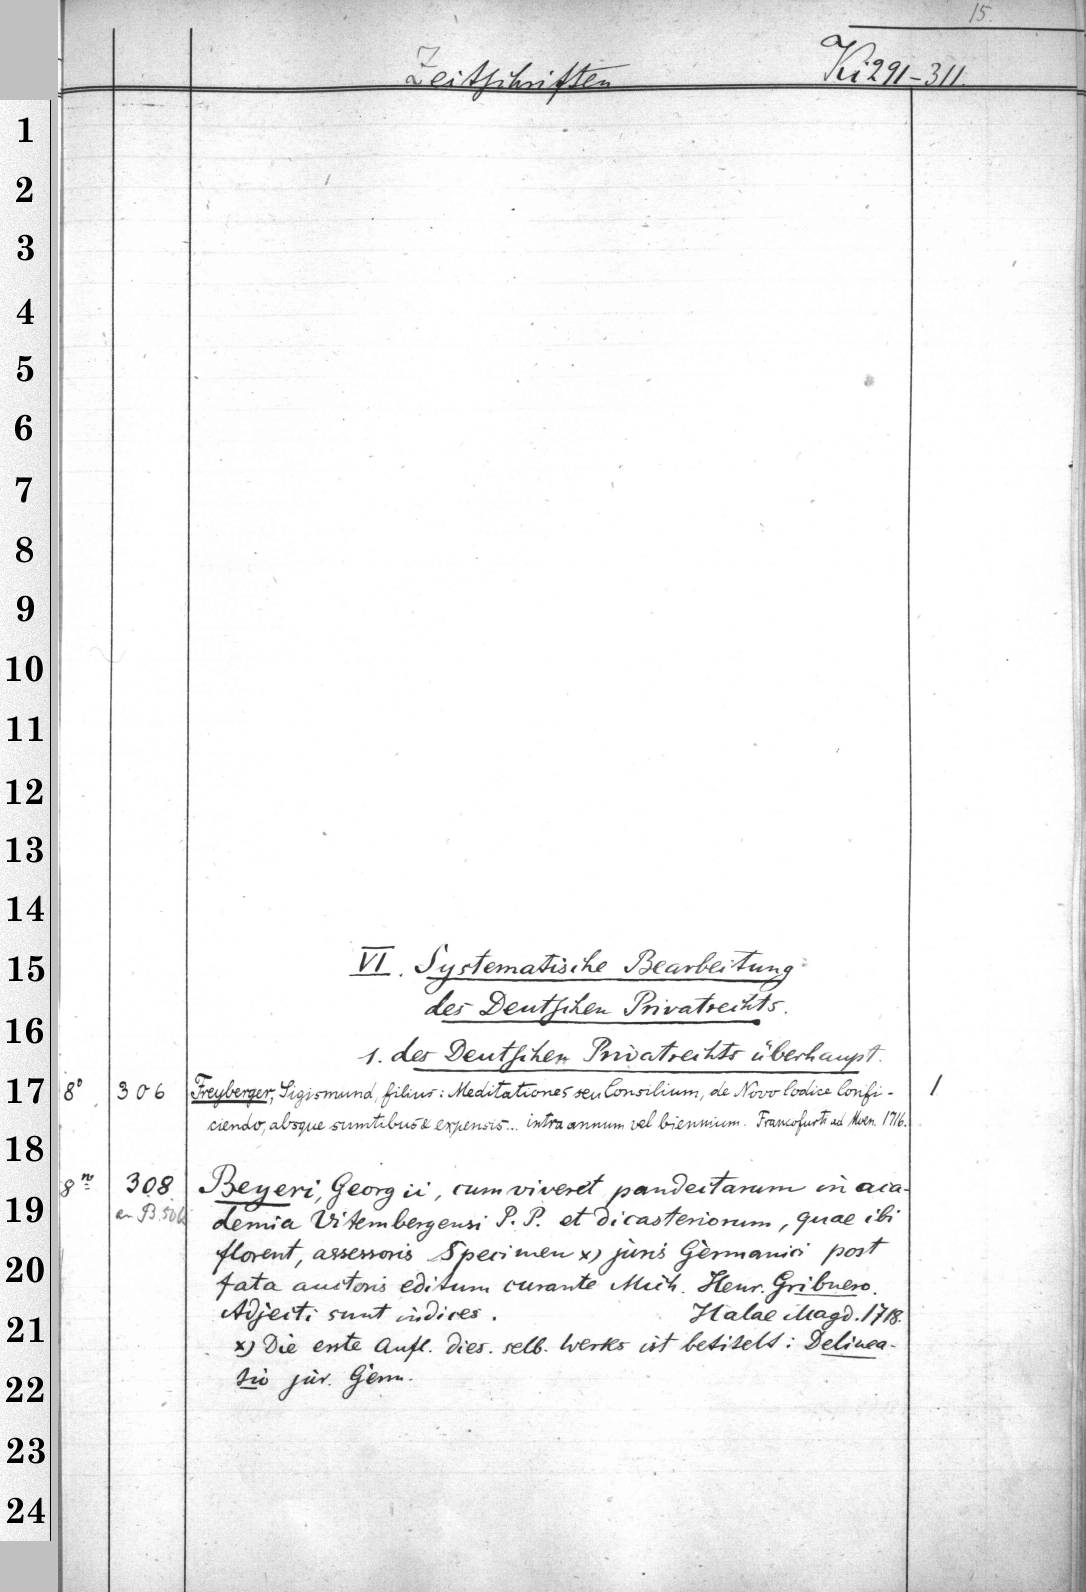 15.
Zeitschriften Ki 291-311.
1
2
3
4
5
6
7
8
9
10
11
12
13
14
15 VI. Systematische Bearbeitung
16 des Deutschen Privatrechts.
1. des Deutschen Privatrechts überhaupt.
17 8° 306 Freyberger, Sigismund, filius: Meditationes seu Consilium, de Novo Codice Confi- 1
ciendo, absque sumtibus & expensis... intra annum vel biennium. Francofurti ad Moen. 1716.
18
8° 308 Beyeri, Georgii, cum viveret pandectarum in aca-
19 an B. demia Vitembergensi P. P. et dicasteriorum, quae ibi
florent, assessoris Specimen x) juris Germanici post
20 fata auctoris editum curante Mich. Henr. Gribnero.
21 Adjecti sunt indices. Halae Magd. 1718.
x) Die erste Aufl. dies. selb. Werks ist betitelt: Delinea-
22 tio jur. Germ.
23
24